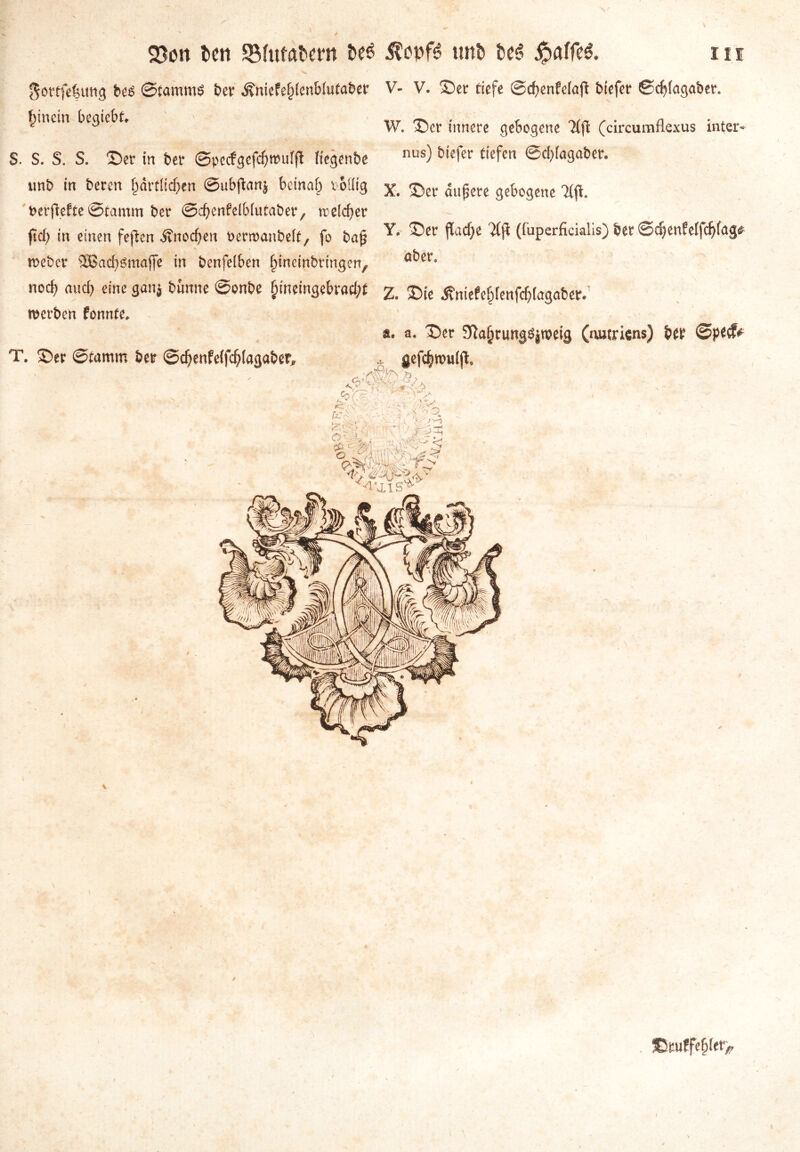 Von den Blutadern des Kopfs und des Halses. 111
Fortsetzung des Stamms der Kniekehlenblutader
hinein begiebt.
S. S. S. S. Der in der Speckgeschwulst liegende
und in deren härtlichen Substanz beinah völlig
versteckte Stamm der Schenkelblutader, welcher
sich in einen festen Knochen verwandelt, so daß
weder Wachsmasse in denselben hineinbringen,
noch auch eine ganz dünne Sonde hineingebracht
werden konnte.
T. Der Stamm der Schenkelschlagader,
V. V. Der tiefe Schenkelast dieser Schlagader.
W. Der innere gebogene Ast (circumflexus inter-
nus) dieser tiefen Schlagader.
X. Der äußere gebogene Ast.
Y. Der flache Ast (superficialis) der Schenkelschlag-
ader.
Z. Die Kniekehlenschlagader.
a. a. Der Nahrungszweig (nutriens) der Speck-
geschwulst.
Druckfehler,